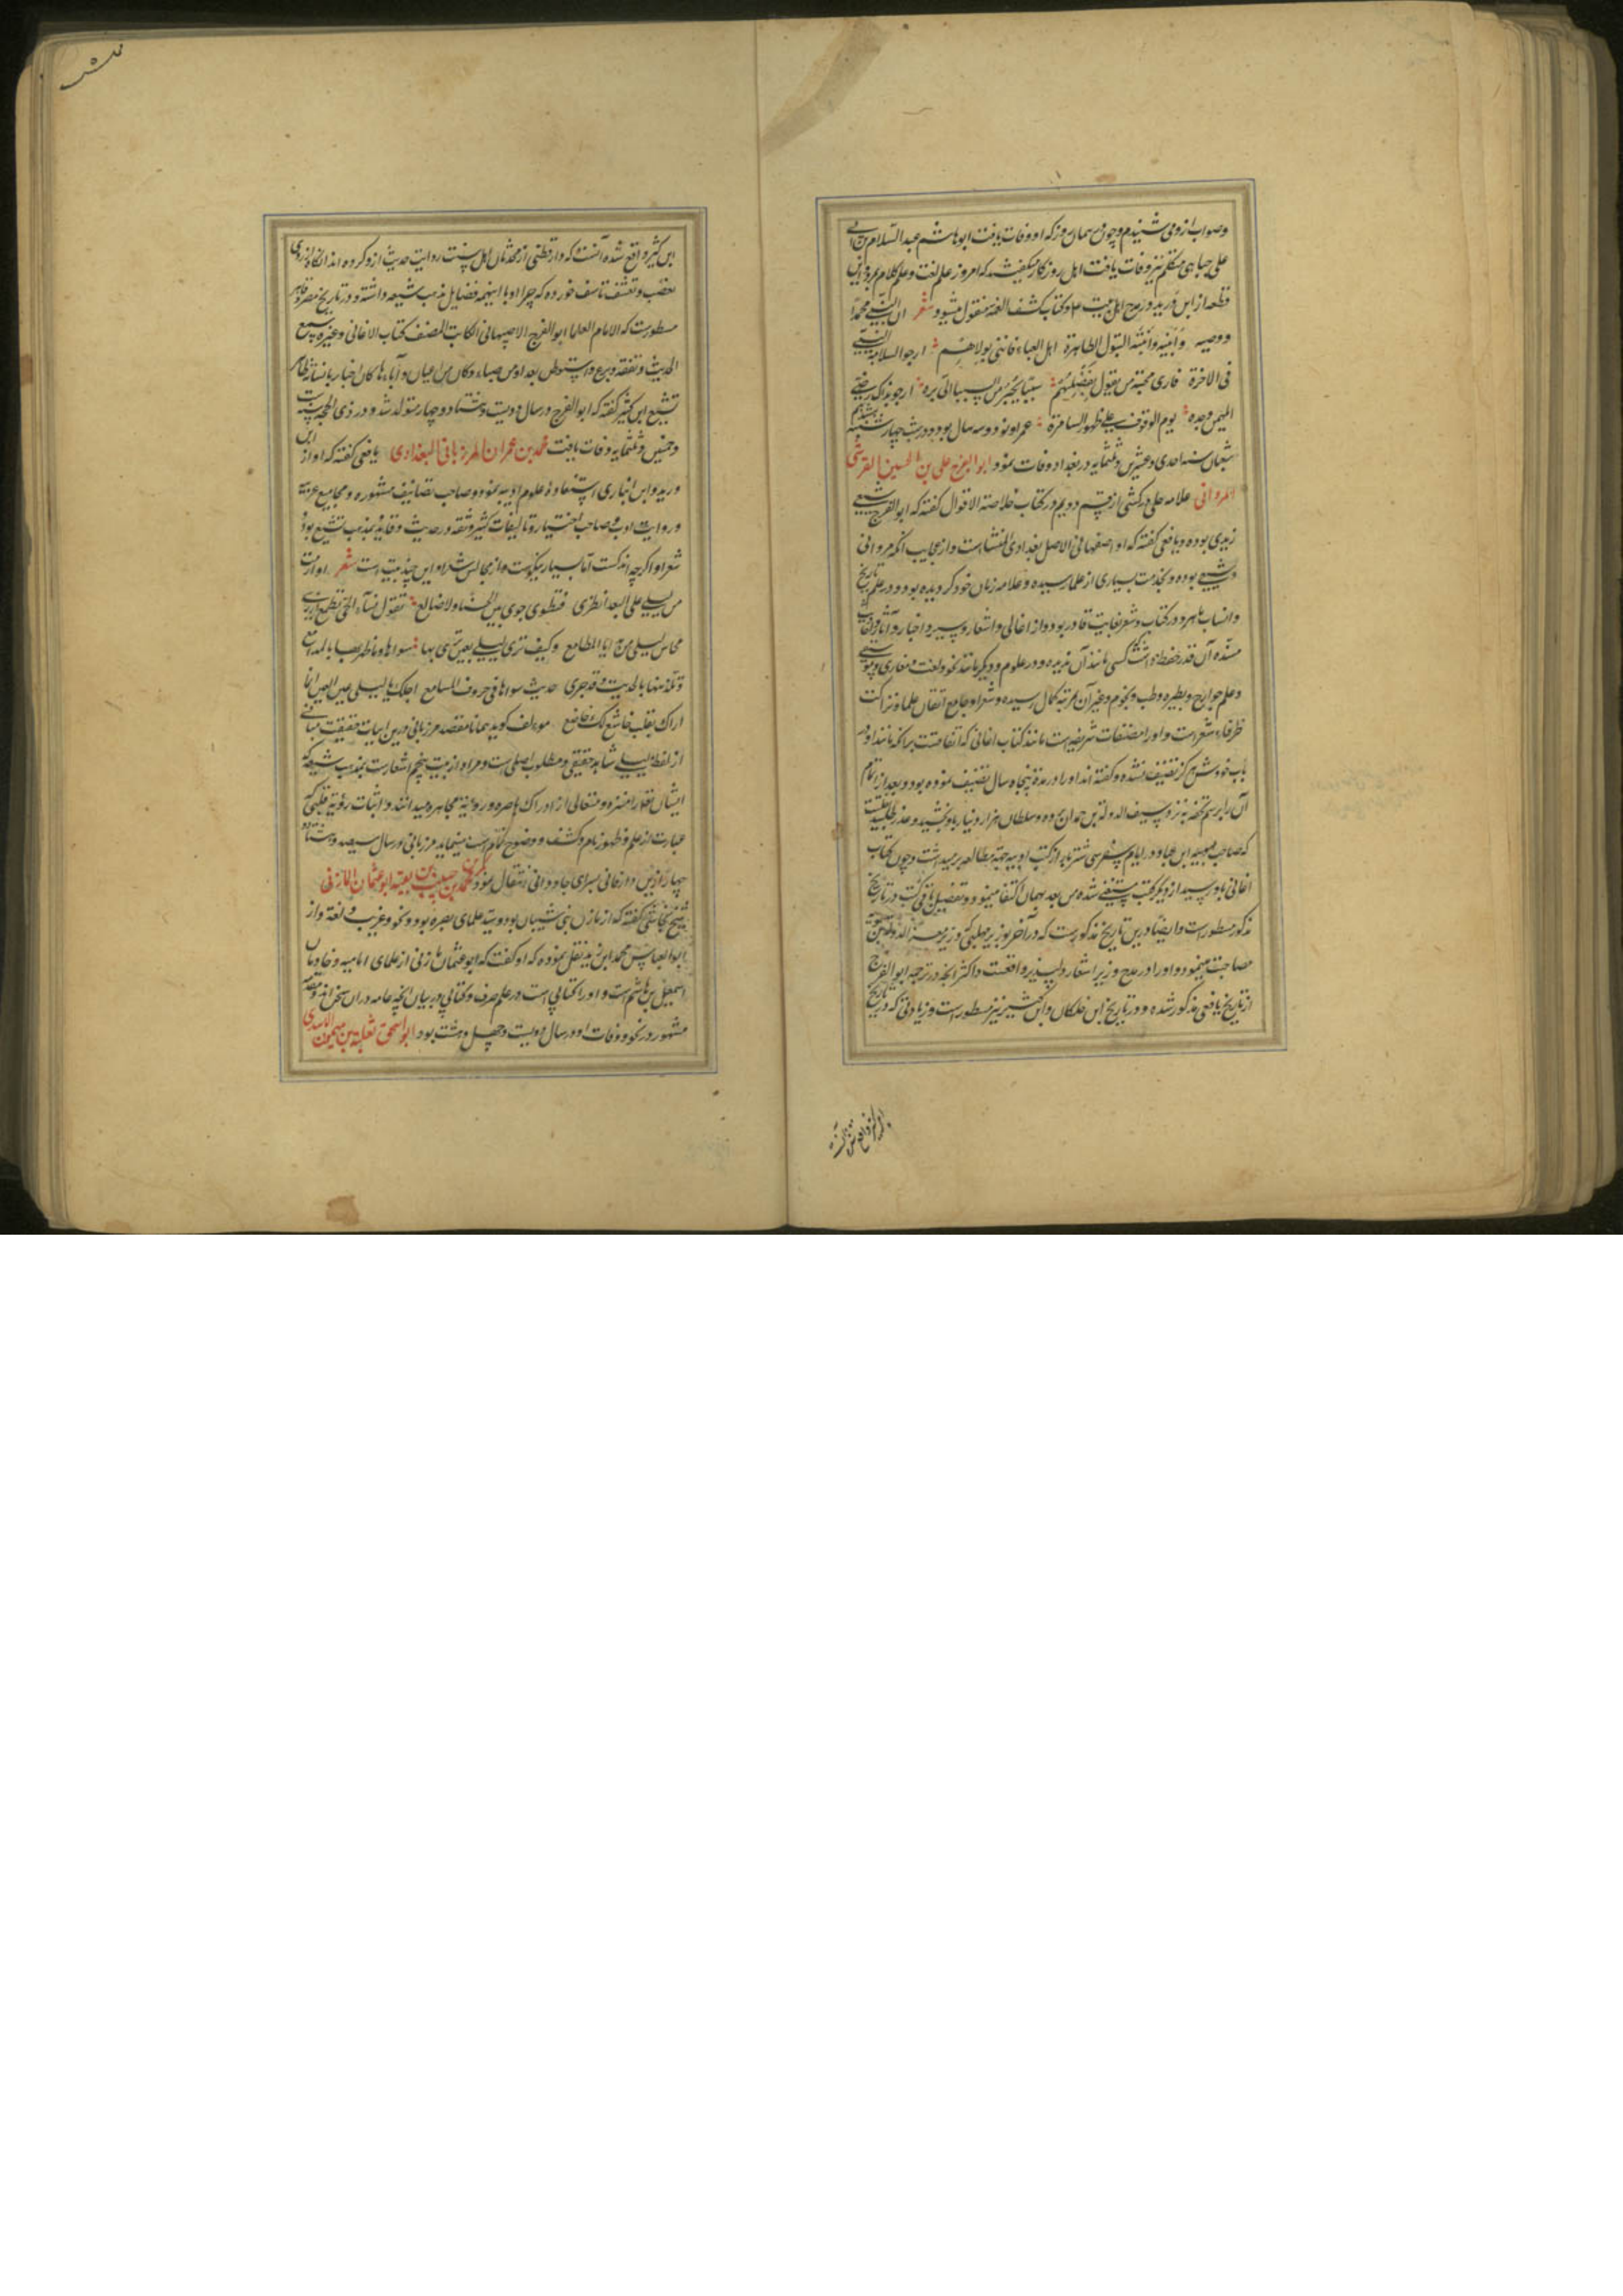 وصواب از ومی شنیدم وچون همان روز که او وفات یافت ابو هاشم عبد السلام بن ابی
علی جبایی متکلم نیز وفات یافت اهل روزگار میگفتند که امروز علم لغت و علم کلام بمرد و این
قطعه از ابن درید در مدح اهل بیت و کتاب کشف الغمه منقول میشود شعر ان النبی محمدا
ووصیه وابنیه وابنته البتول الطاهرة اهل العباء فاننی بولاهم ارجو السلامة
فی الاخرة فاری محبة من یقول بفضلهم سببا یجیر من السبیل الجائره ارجو بذاک رضی
المهیمن وحده یوم الوقوف علی ظهور الساهرة عمر او نود و سه سال بود و در شب چهارشنبه
شعبان سنه احدی و عشرین و ثلثمایه در بغداد وفات نمود ابو الفرج علی بن الحسین القرشی
المروانی علامه حلی در قسم دویم در کتاب خلاصة الاقوال گفته که ابو الفرج شیعی
زیدی بوده و یافعی گفته که او اصفهانی الاصل بغدادی المنشا است و از عجایب آنکه مروانی
شیعی بوده و بخدمت بسیاری از علما رسیده و علامه زمان خود گردیده بود و در علم تاریخ
وانساب ماهر و در کتاب و شعر بغایت قادر بود و از اغانی و اشعار و سیر و اخبار و آثار
مسنده آن قدر حفظ داشت که کسی مانند آن ندیده و در علوم دیگر مانند نحو و لغت و مغازی
و علم جوارح و بیطره و طب و نجوم و غیر آن بمرتبه کمال رسیده و شعر او جامع اتقان علما و نزاکت
ظرفاء شعر است و او را مصنفات شریفه است مانند کتاب اغانی که اتفاقست بر آنکه مانند او در
باب خودش هرگز تصنیف نشده و گفته اند او را در مدة پنجاه سال تصنیف نموده بود و بعد از اتمام
آن را برسم تحفه به نزد سیف الدولة بن حمدان برده و سلطان هزار دینار باو بخشید و عذر طلبید
که صاحب ابن عباد در ایام سفر سی شتر بار از کتب ادبیه جهة مطالعه بر میداشت و چون کتاب
اغانی باو رسید از دیگر کتب مستغنی شده من بعد بهمان اکتفا مینمود و تفصیل باقی کتب در تاریخ
مذکور مسطور است و ایضا در این تاریخ مذکور است که در آخر بوزیر مهلبی وزیر معز الدوله
مصاحبت مینمود و او را در مدح وزیر اشعار دلپذیر واقعست و اکثر آنچه در ترجمه ابو الفرج
از تاریخ یافعی مذکور شده و در تاریخ ابن خلکان و ابن کثیر نیز مسطور است و زیادتی که در تاریخ
ابن کثیر واقع شده آنست که
ابن کثیر واقع شده آنست که دارقطنی از محدثان اهل سنت روایت حدیث از او کرده اند آنگاه از روی
تعصب و تعسف تاسف خورده که چرا او با اینهمه فضایل مذهب شیعه داشته و در تاریخ مصر و قاهره
مسطور است که الامام العلما ابو الفرج الاصبهانی الکاتب المصنف کتاب الاغانی و غیره سمع
الحدیث و تفقه و برع و استوطن بغداد من صباه و کان من اعیان ادباءها کان اخباریا نسابة ظاهر
تشیع ابن کثیر گفته که ابو الفرج در سال دویست و هشتاد و چهار متولد شد و در ذی الحجه سنه ست
و خمسین و ثلثمایه وفات یافت محمد بن عمران المرزبانی البغدادی یافعی گفته که او از ابن
درید و ابن انباری استفاده علوم ادبیه نموده و صاحب تصانیف مشهوره و مجامیع غریبه
و روایت ادب و صاحب اختیار و تالیفات کثیر و ثقه در حدیث و قاید بمذهب تشیع بود و
شعر او اگرچه اندکست اما بسیار نیکوست و از محاسن شعر او این چند بیت است شعر
من لیلی علی البعد نظرة فتطوی جوی بین الحشا والاضالع تقول نساء الحی تطمع ان تری
محاسن لیلی مت بداء المطامع وکیف تری لیلی بعین تری بها سواها وما طهرتها بالمدامع
وتلتذ منها بالحدیث وقد جری حدیث سواها فی خروق المسامع اجلک یا لیلی عن العین انما
اراک بقلب خاشع لک خاضع مولف گوید همانا مقصد مرزبانی درین ابیات حقیقت مبانی
از لفظ لیلی شاهد حقیقی و مطلوب اصلی است و مراد از بیت پنجم اشعار است بمذهب شیعه که
ایشان خدا را منزه و متعالی از ادراک باصره و رؤیة مجاهره میدانند و اثبات رؤیة قلبی که
عبارت از علم و ظهور تام و کشف و وضوح تام است مینماید مرزبانی در سال سیصد و هشتاد و
چهار ازین دار فانی بسرای جاودانی انتقال نمود بکر بن محمد بن حبیب بن بقیه ابو عثمان المازنی
شیخ نجاشی گفته که از مازن بنی شیبان بود و سید علمای بصره بود و نحو و غریب و لغة و از
ابو العباس محمد ابن یزید نقل نموده که او گفت که ابو عثمان مازنی از علمای امامیه و خادمان
اسمعیل بن هاشم است و او را کتابی است در علم صرف و کتابی در بیان آنچه عامه در آن سخن اند و مقصد
مشهور در نحو و وفات او در سال دویست و چهل و هشت بود ابو اسحق ثعلبه بن میمون الاسدی